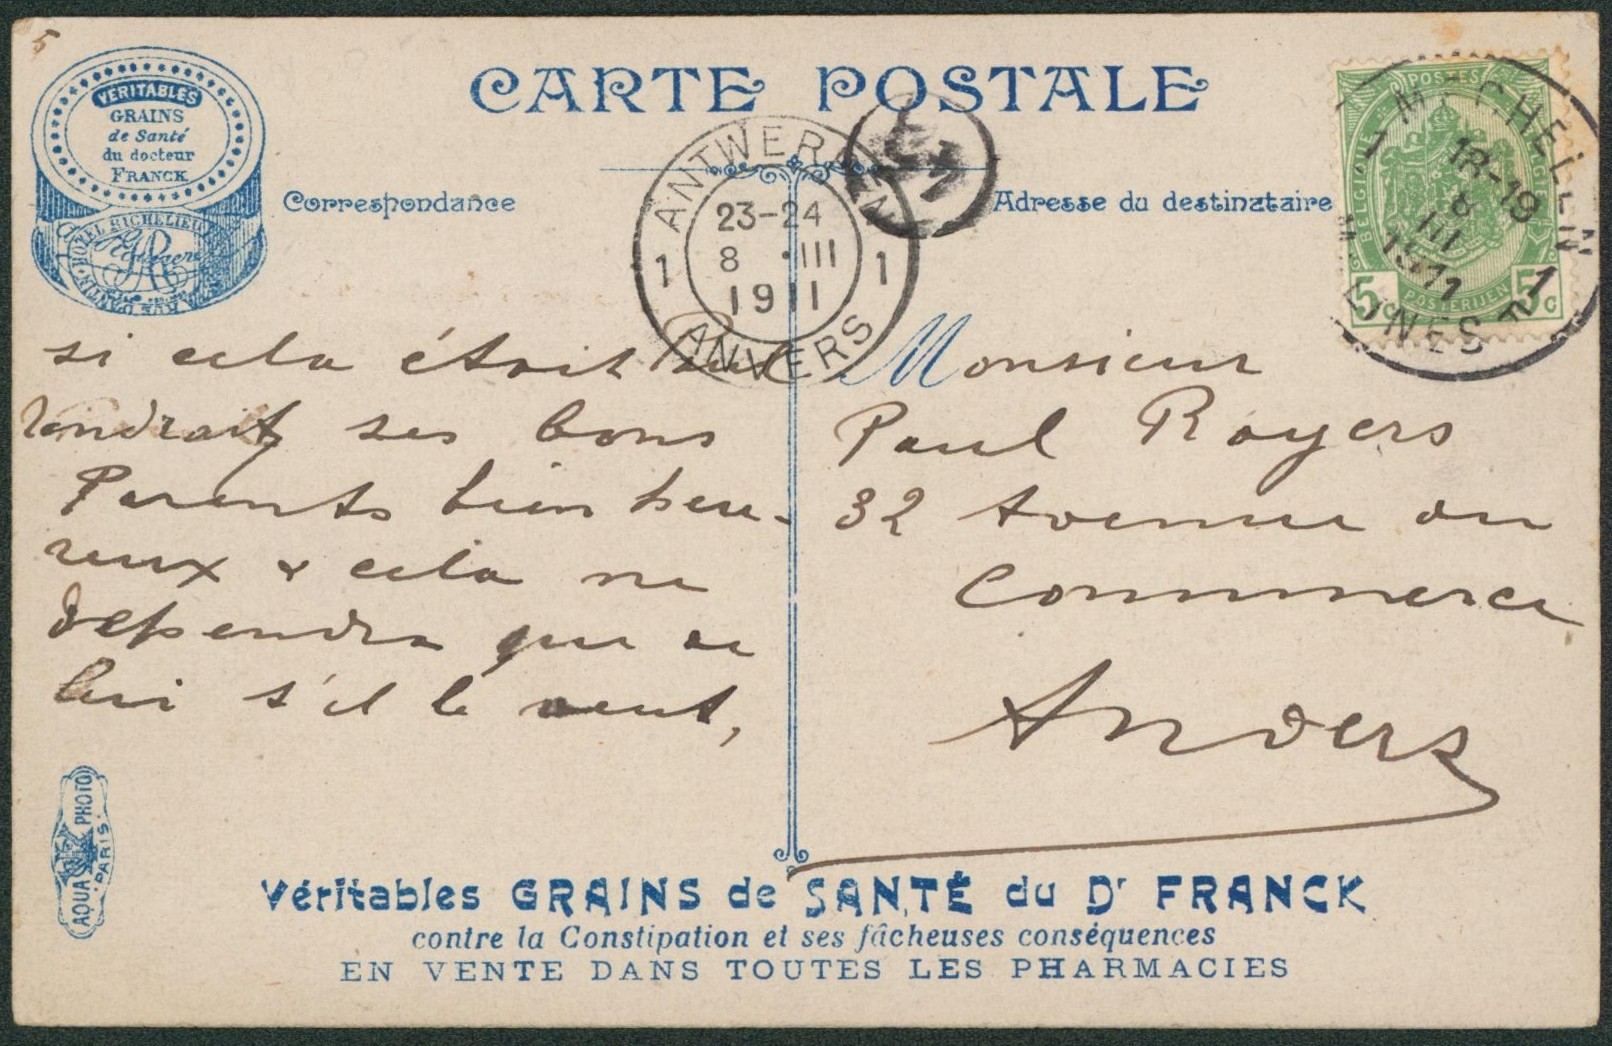 5
VERITABLES
GRAINS
de Santé
du docteur
FRANCK
HOTEL RICHELIEU
CARTE POSTALE
Correspondance
Adresse du destinataire
ANTWERPEN
23-24
8 · III
1911
1 1
ANVERS
POSTES
BELGIQUE
BELGIË
5c 5c
POSTERIJEN
MECHELEN
18-19
8
III
1911
1
MALINES
si cela était Paul
rendrait ses bons
Parents bien heu-
reux & cela ne
dependra que de
lui s'il le veut,
Monsieur
Paul Royers
32 Avenue du
Commerce
Anvers
AQUA PHOTO
PARIS
Véritables GRAINS de SANTÉ du Dr FRANCK
contre la Constipation et ses fâcheuses conséquences
EN VENTE DANS TOUTES LES PHARMACIES